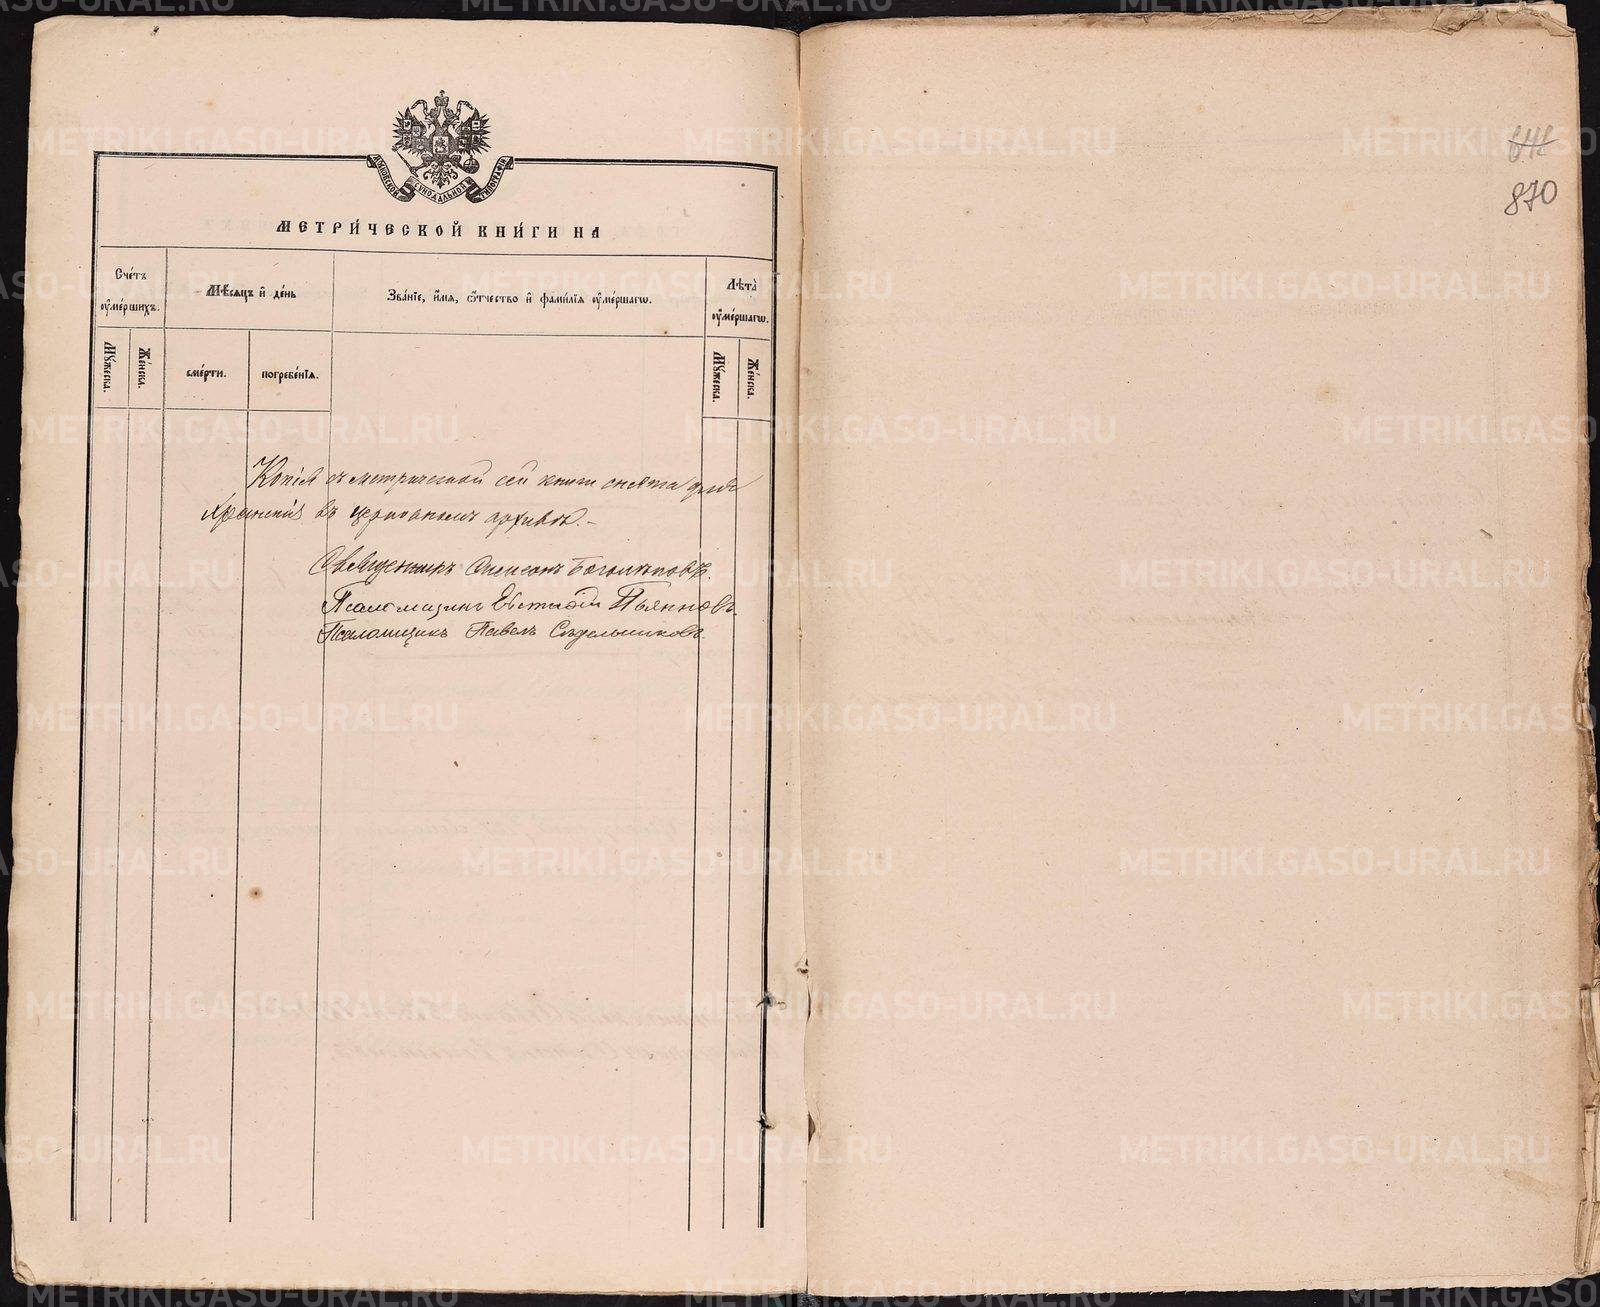 МОСКОВСКОЙ СУНОДАЛЬНОЙ ТИПОГРАФІИ
МЕТРИ́ЧЕСКОЙ КНИ́ГИ НА
Сче́тъ оу҆ме́ршихъ.
Мѣ́сяцъ и҆ де́нь
Зва́нїе, и҆́мя, ѻ҆́тчество и҆ фами́лїя оу҆ме́ршагѡ.
Лѣта̀ оу҆ме́ршагѡ.
Мꙋ́жеска.
Же́нска.
сме́рти.
погребе́нїя.
Мꙋ́жеска.
Же́нска.
Копія съ метрической сей книги снята для
храненія въ церковномъ архивѣ.-
Священникъ Симеонъ Боголѣповъ.
Псаломщикъ Евстафій Пьянковъ.
Псаломщикъ Павелъ Сѣдельниковъ.
870
METRIKI.GASO-URAL.RU